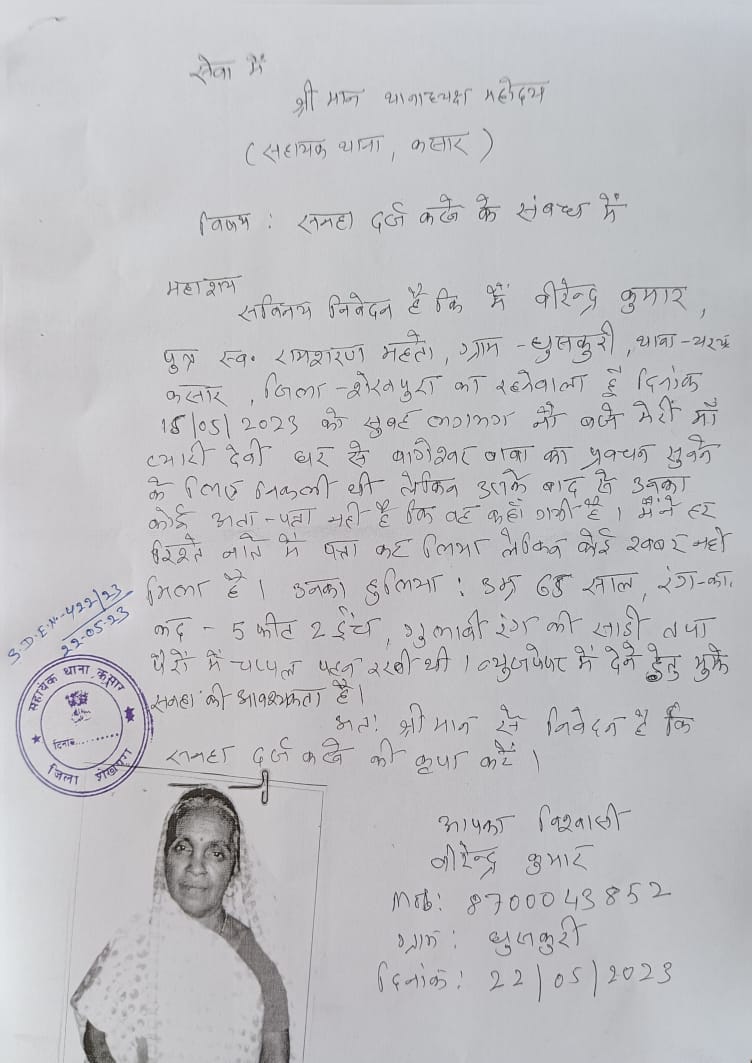 सेवा में
श्री मान थानाध्यक्ष महोदय
(सहायक थाना, कसार)
विषय : सनहा दर्ज करने के संबन्ध में
महाशय
सविनय निवेदन है कि मैं वीरेन्द्र कुमार,
पुत्र स्व॰ रामशरण महतो, ग्राम - धुलकुरी, थाना -
कसार, जिला - शेखपुरा का रहनेवाला हूँ दिनांक
15/05/2023 को सुबह लगभग नौ बजे मेरी माँ
प्यारी देवी घर से बागेश्वर बाबा का प्रवचन सुनने
के लिए निकली थी लेकिन उसके बाद से उनका
कोई अता - पता नहीं है कि वह कहाँ गयी है । मैंने हर
रिश्ते नाते में पता कर लिया लेकिन कोई खबर नहीं
मिला है । उनका हुलिया : उम्र 68 साल, रंग -
कद - 5 फीट 2 ईंच, गुलाबी रंग की साडी तथा
पैरों में चप्पल पहन रखी थी । न्युजपेपर में देने हेतु मुझे
सनहा की आवश्यकता है ।
अतः श्री मान से निवेदन है कि
सनहा दर्ज करने की कृपा करें ।
S.D.E.N-422/23
22-05-23
सहायक थाना, कसार
दिनांक..........
जिला शेखपुरा
आपका विश्वासी
वीरेन्द्र कुमार
Mob: 8700043852
ग्राम : धुलकुरी
दिनांक : 22/05/2023